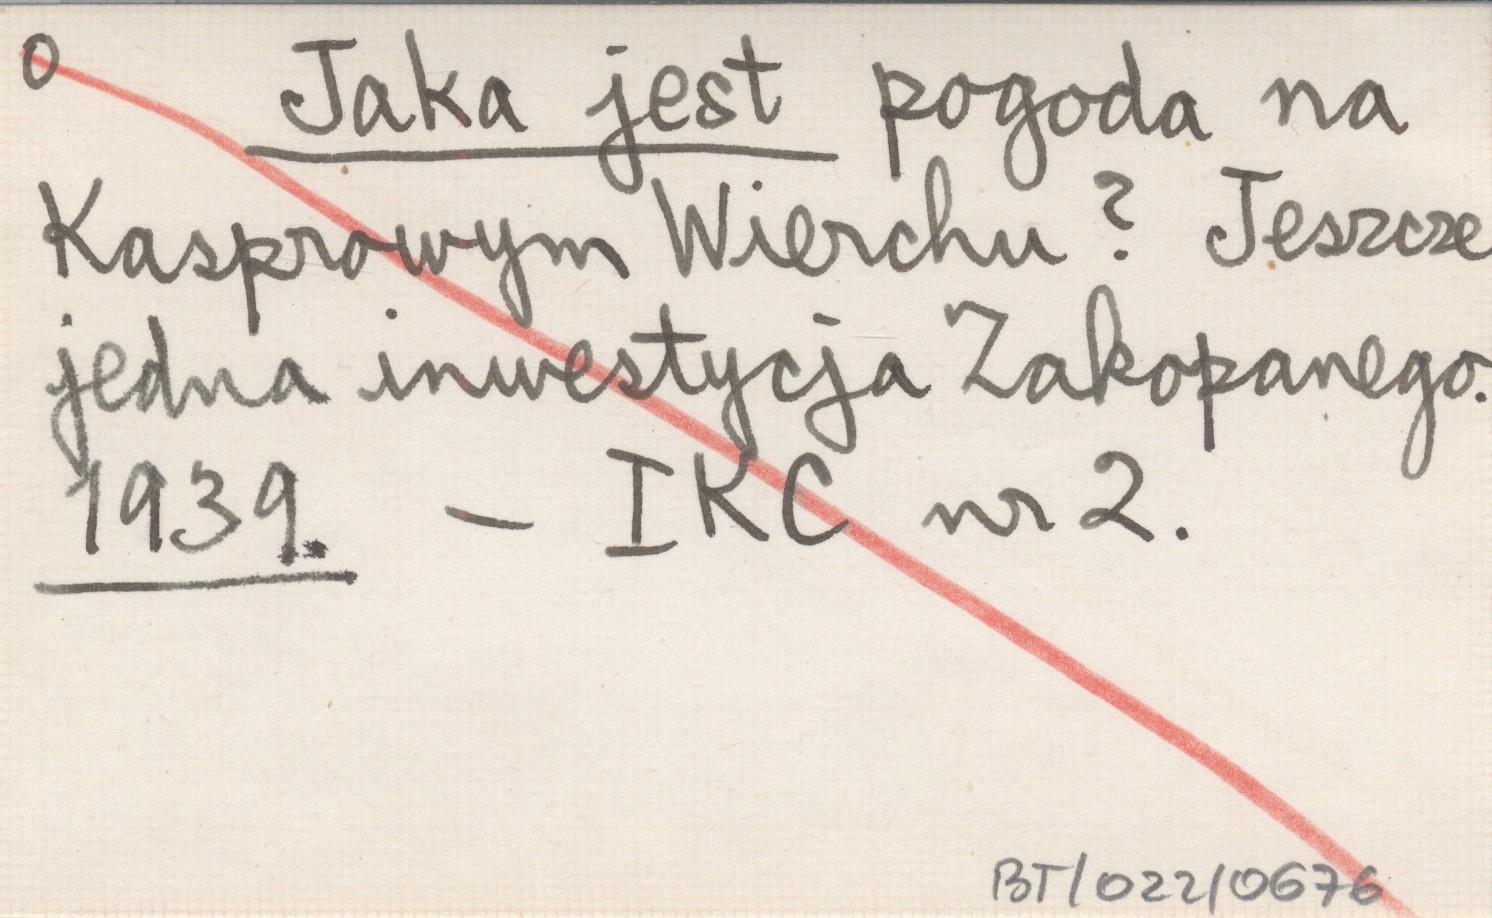 0 Jaka jest pogoda na
Kasprowym Wierchu? Jeszcze
jedna inwestycja Zakopanego.
1939. – IKC nr 2.
BT/022/0676